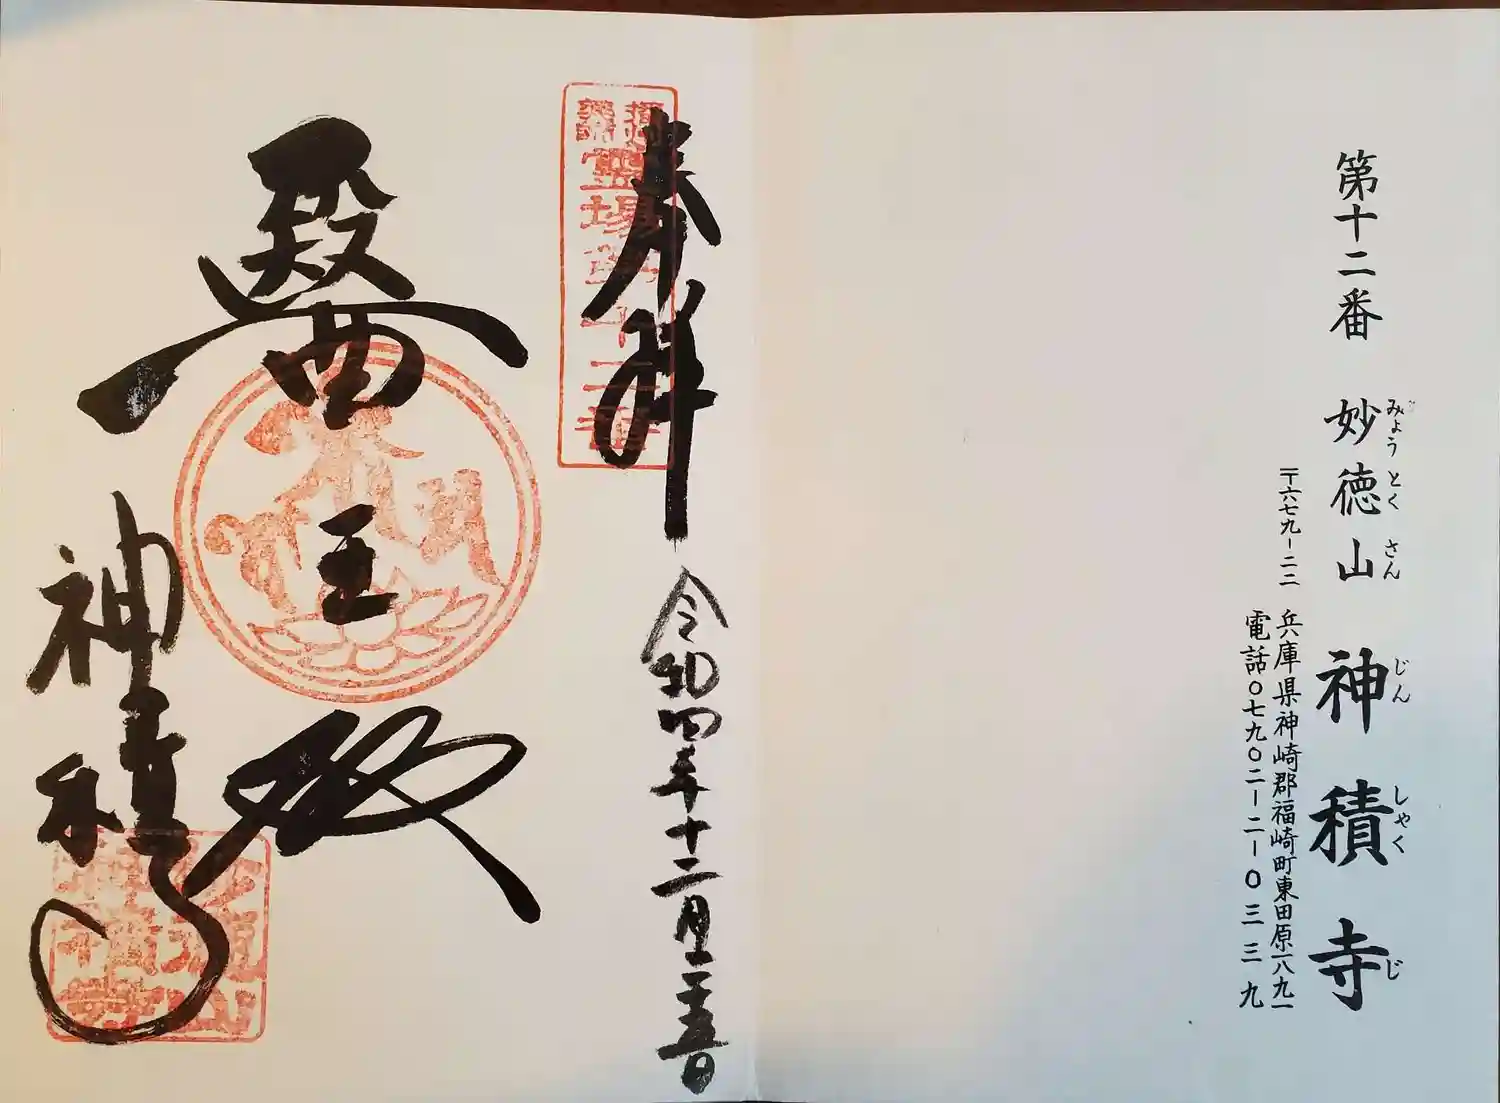 第十二番 妙徳山 神積寺
みょう とく さん じん しゃく じ
〒六七九ー二二 兵庫県神崎郡福崎町東田原一八九一
電話〇七九〇二ー二ー〇三三九
奉拝
令和四年十二月二十五日
播州薬師霊場第十二番
醫王殿
神積寺